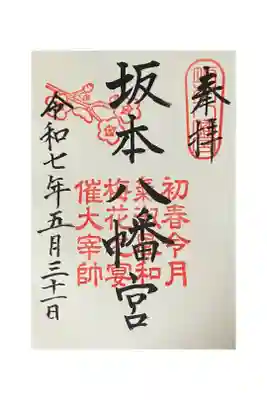 奉拝
初春令月
氣淑風和
坂本八幡宮
梅花宴
催大宰帥
令和七年五月三十一日